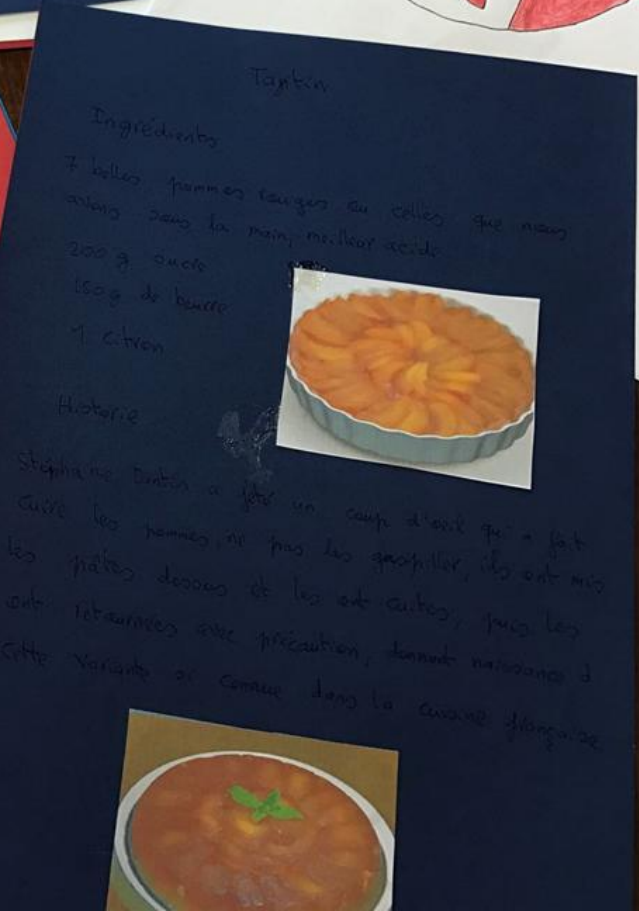 Tantin
Ingrédients
7 belles pommes rouges ou celles que nous
avions sous la main, meilleur acide
200 g sucre
150 g de beurre
1 citron
Historie
Stéphanie Tantin a jeté un coup d'oeil qui a fait
cuire les pommes, ne pas les gaspiller, ils ont mis
les pâtes dessus et les ont cuites, puis les
ont retournées avec précaution, donnant naissance à
cette variante si connue dans la cuisine française